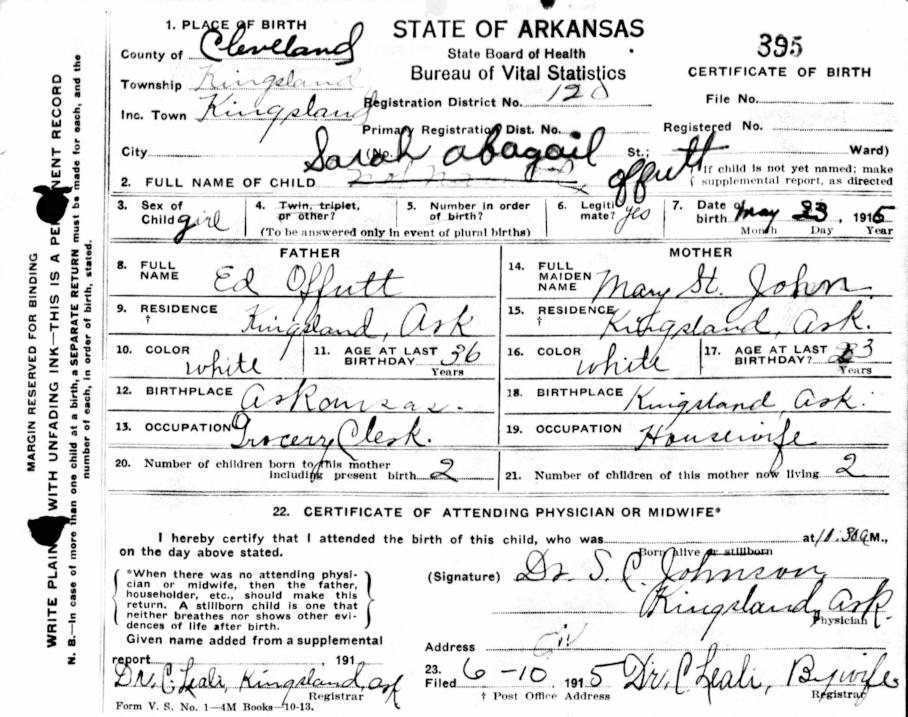 1. PLACE OF BIRTH
County of Cleveland
Township Kingsland
Inc. Town Kingsland
City
STATE OF ARKANSAS
State Board of Health
Bureau of Vital Statistics
Registration District No. 120
Primary Registration Dist. No.
(No. St.; Ward)
395
CERTIFICATE OF BIRTH
File No.
Registered No.
2. FULL NAME OF CHILD Sarah Abagail Offutt
{ If child is not yet named; make
{ supplemental report, as directed
3. Sex of Child girl
4. Twin, triplet, or other?
5. Number in order of birth?
(To be answered only in event of plural births)
6. Legitimate? yes
7. Date of birth May 23, 1915
Month Day Year
FATHER
8. FULL NAME Ed Offutt
9. RESIDENCE † Kingsland, Ark
10. COLOR white
11. AGE AT LAST BIRTHDAY 36 Years
12. BIRTHPLACE Arkansas.
13. OCCUPATION Grocery Clerk.
MOTHER
14. FULL MAIDEN NAME Mary St. John.
15. RESIDENCE † Kingsland, Ark.
16. COLOR white
17. AGE AT LAST BIRTHDAY? 23 Years
18. BIRTHPLACE Kingsland, Ark.
19. OCCUPATION Housewife
20. Number of children born to this mother
including present birth 2
21. Number of children of this mother now living 2
22. CERTIFICATE OF ATTENDING PHYSICIAN OR MIDWIFE*
I hereby certify that I attended the birth of this child, who was at 11:30 A M.,
Born alive or stillborn
on the day above stated.
*When there was no attending physi-
cian or midwife, then the father,
householder, etc., should make this
return. A stillborn child is one that
neither breathes nor shows other evi-
dences of life after birth.
Given name added from a supplemental
report 191
Dr. C. Leali, Kingsland, Ark
Registrar
Form V. S. No. 1—4M Books—10-13.
(Signature) Dr. S. C. Johnson
Kingsland, Ark.
Physician
Address
23. Filed 6-10 1915 Dr. C Leali, By wife
† Post Office Address Registrar
MARGIN RESERVED FOR BINDING
WRITE PLAIN WITH UNFADING INK—THIS IS A PE NENT RECORD
N. B.—In case of more than one child at a birth, a SEPARATE RETURN must be made for each, and the
number of each, in order of birth, stated.